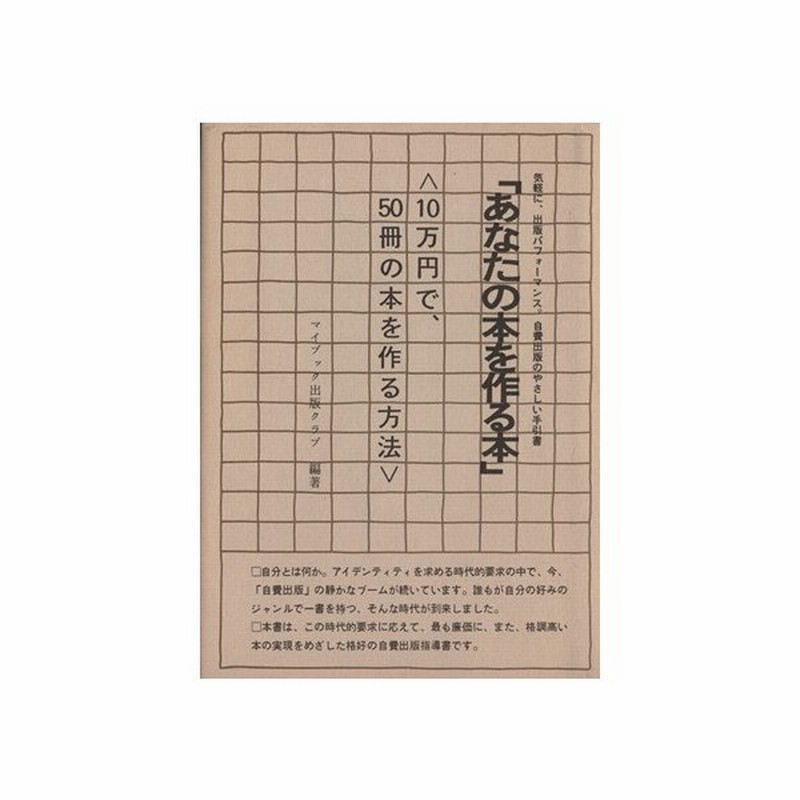 気軽に、出版パフォーマンス。自費出版のやさしい手引書
「あなたの本を作る本」
＜10万円で、
50冊の本を作る方法＞
マイブック出版クラブ　編著
□自分とは何か。アイデンティティを求める時代的要求の中で、今、
「自費出版」の静かなブームが続いています。誰もが自分の好みの
ジャンルで一書を持つ、そんな時代が到来しました。
□本書は、この時代的要求に応えて、最も廉価に、また、格調高い
本の実現をめざした格好の自費出版指導書です。